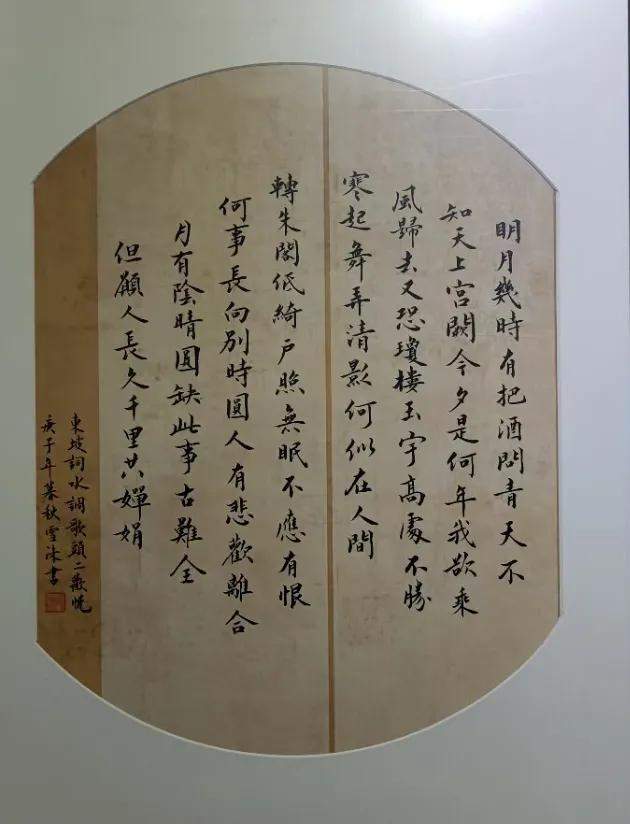 明月幾時有把酒問青天不
知天上宮闕今夕是何年我欲乘
風歸去又恐瓊樓玉宇高處不勝
寒起舞弄清影何似在人間
轉朱閣低綺戶照無眠不應有恨
何事長向別時圓人有悲歡離合
月有陰晴圓缺此事古難全
但願人長久千里共嬋娟
東坡詞水調歌頭二
庚子年暮秋雪書